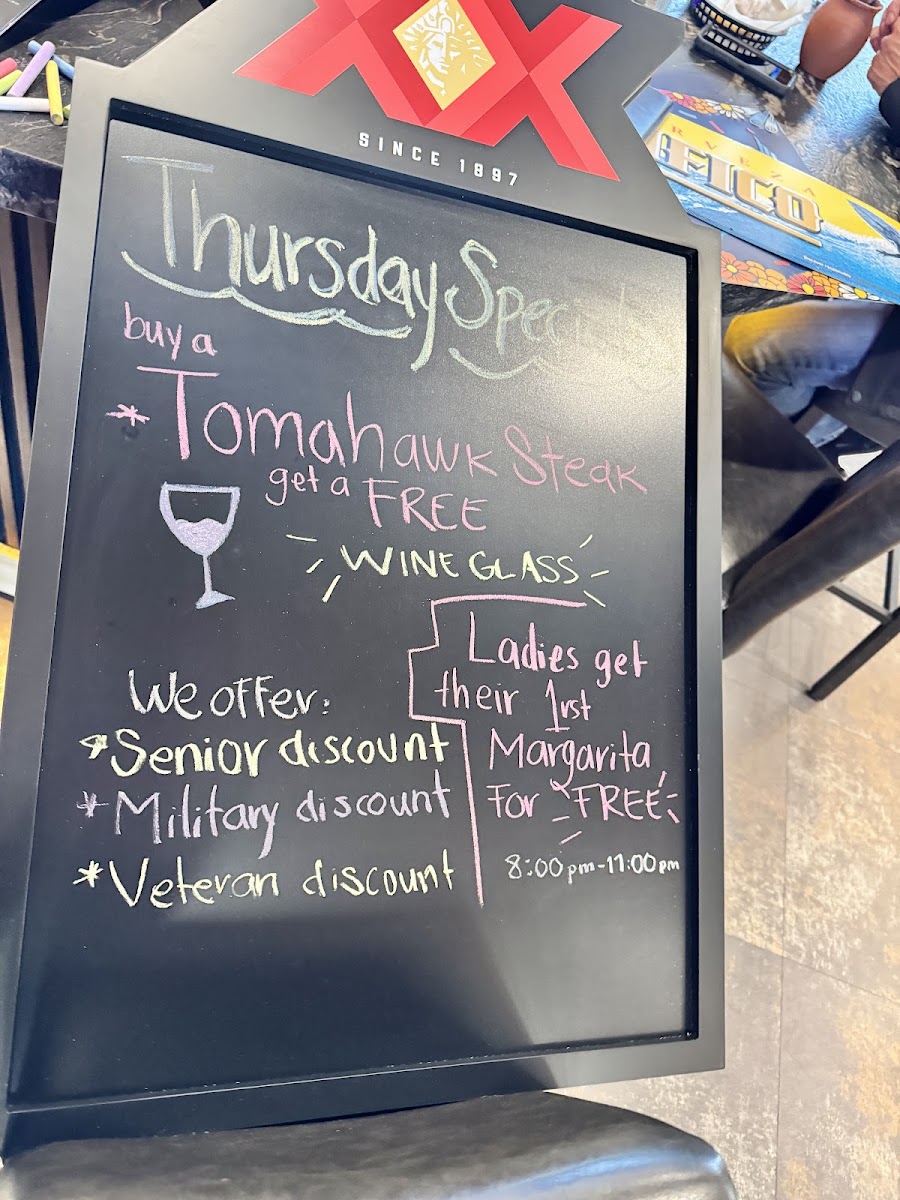 XX
SINCE 1897
Thursday Spec
buy a
* Tomahawk Steak
get a FREE
WINE GLASS
We offer:
* Senior discount
* Military discount
* Veteran discount
Ladies get
their 1rst
Margarita
For FREE
8:00pm-11:00pm